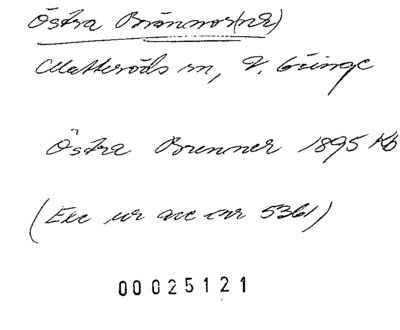 Östra Brännor(na)
Matteröds sn, V. Göinge
Östra Brenner 1895 Kb
(Exc ur acc nr 5361)
00025121